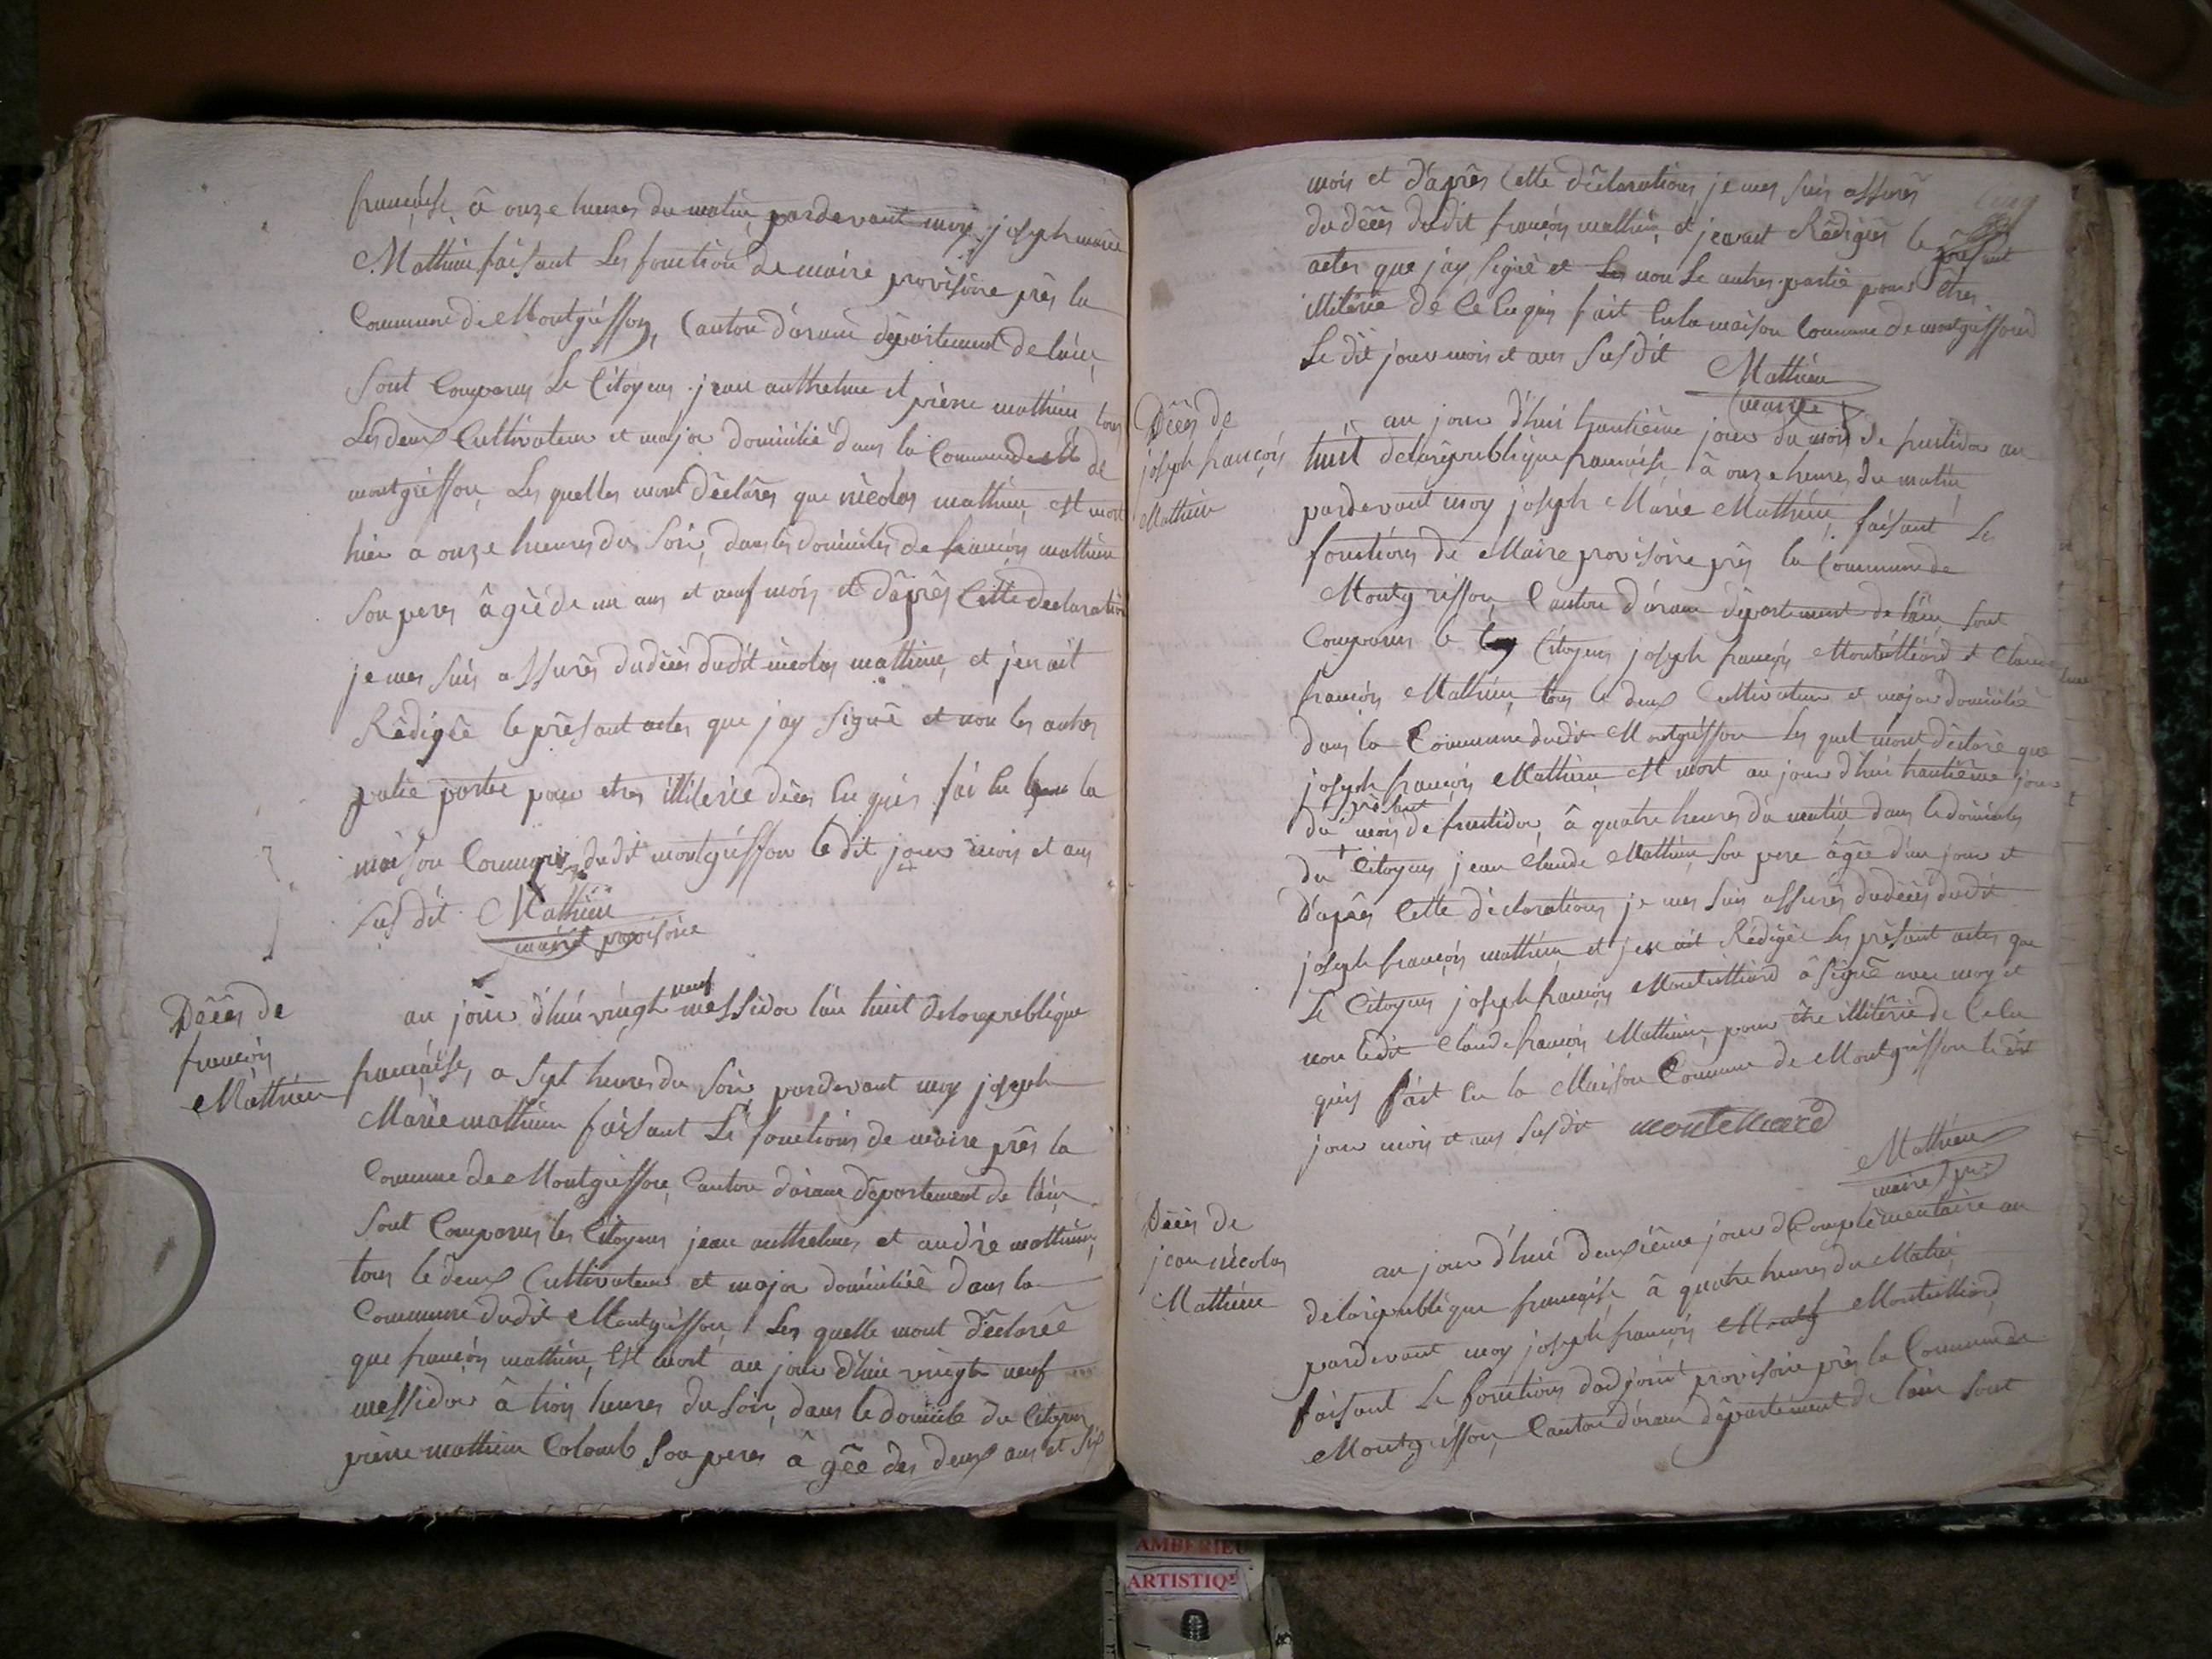 françóise, â onze heures du matin pardevant moy joseph marie
Mathieu faisant Les fonction de maire provisoire près la
Commune de Montgriffon, Canton d'arane département de l'ain
Sont Comparus Le Citoyens jean anthelme et pierre mathieu tous
Les deux Cultivateur et major domicilié dans la Commune de
montgriffon, Les quelles mont déclarés que nicolas mathieu, est mort
hier a onze heures du Soir, dans les domiciles de françois mathieu
Son peres âgéé de un ans et neuf mois et d'après Cette declaration
je mes suis assurés du décès dudit nicolas mathieu, et jen ait
Rédigée le présant actes que jay signé et non les autres
patie portes pour etres illiterie de ce en quis fai en la
maison Commune dudit montgriffon le dit jour mois et ans
susdit Mathieu
maire provisoire
Décés de
françois
Mathieu
au jour d'hui vingt neuf messidor l'an huit de la republique
françaisse, a sept heures du Soir, pardevant moy joseph
Marie mathieu faisant Les fonctions de maire près la
Commune de Montgriffon, Canton d'arane département de l'ain
Sont Comparus les Citoyens jean anthelmes et andré mathieu,
tous le deux Cultivateur et major domiciliéé dans la
Commune dudit Montgriffon, Les quelle mont déclarée
que françois mathieu, Est mort au jour d'hui vingt neuf
messidor â trois heures du soir, dans le domicile du Citoyen
pierre mathieu Colomb Son peres â gée des deux ans et six
mois et d'après Cette déclarations je mes suis assurés
du décés dudit françois mathieu, et jenait Rédigées le présant
actes que jay signé et non Le autres partie pour êtres
illiterie de Ce En quis fait En la maison Commune de montgriffond
Le dit jour mois et ans Susdit
Mathieu
maire
Décés de
joseph françois
Mathieu
au jour d'hui huitième jour du mois de fructidor an
huit de la republique françaisse â onze heures du matin
pardevant moy joseph Marie Mathieu, faisant Les
fonctions de Maire provisoire près la Commune de
Montgriffon, Canton d'arane département de l'ain, Sont
Comparus le Citoyens joseph françois Montillard et Claude
françois Mathieu, tous le deux Cultivateur et major domicilié
dans la Commune dudit Montgriffon Les quel mont déclaré que
joseph françois Mathieu, est mort au jour d'hui huitième jour
du présant mois de fructidor, â quatre heures du matin dans le domiciles
du Citoyens jean Claude Mathieu Son pere âgée d'un jour et
d'après Cette déclarations je mes suis assurés du décés dudit
joseph françois mathieu et jen ait Rédigée Les présant actes que
Le Citoyens joseph françois Montillard â signé avec moy et
non ledit Claude françois Mathieu, pour être illitérie de Ce En
quis fait En la Maison Commune de Montgriffon le dit
jour mois et ans Susdit
Mathieu
Décés de
jean nicolas
Mathieu
au jour d'hui deuxième jour de Complémentaire an
de la republique françaisse â quatre heures du Matin
pardevant moy joseph françois Montillard
faisant Le fonctions dadjoint provisoire près la Commune de
Montgriffon, Canton d'arane département de l'ain Sont
AMBERIEU
ARTISTIQ